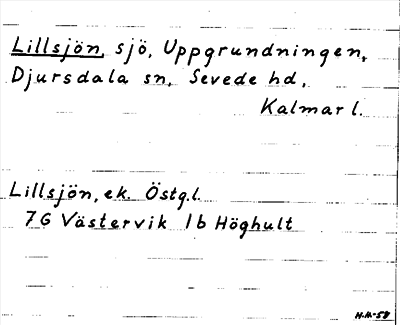 Lillsjön, sjö, Uppgrundningen,
Djursdala sn, Sevede hd,
Kalmar l.
Lillsjön, ek. Östg.l.
7G Västervik 1b Höghult
H.H-58